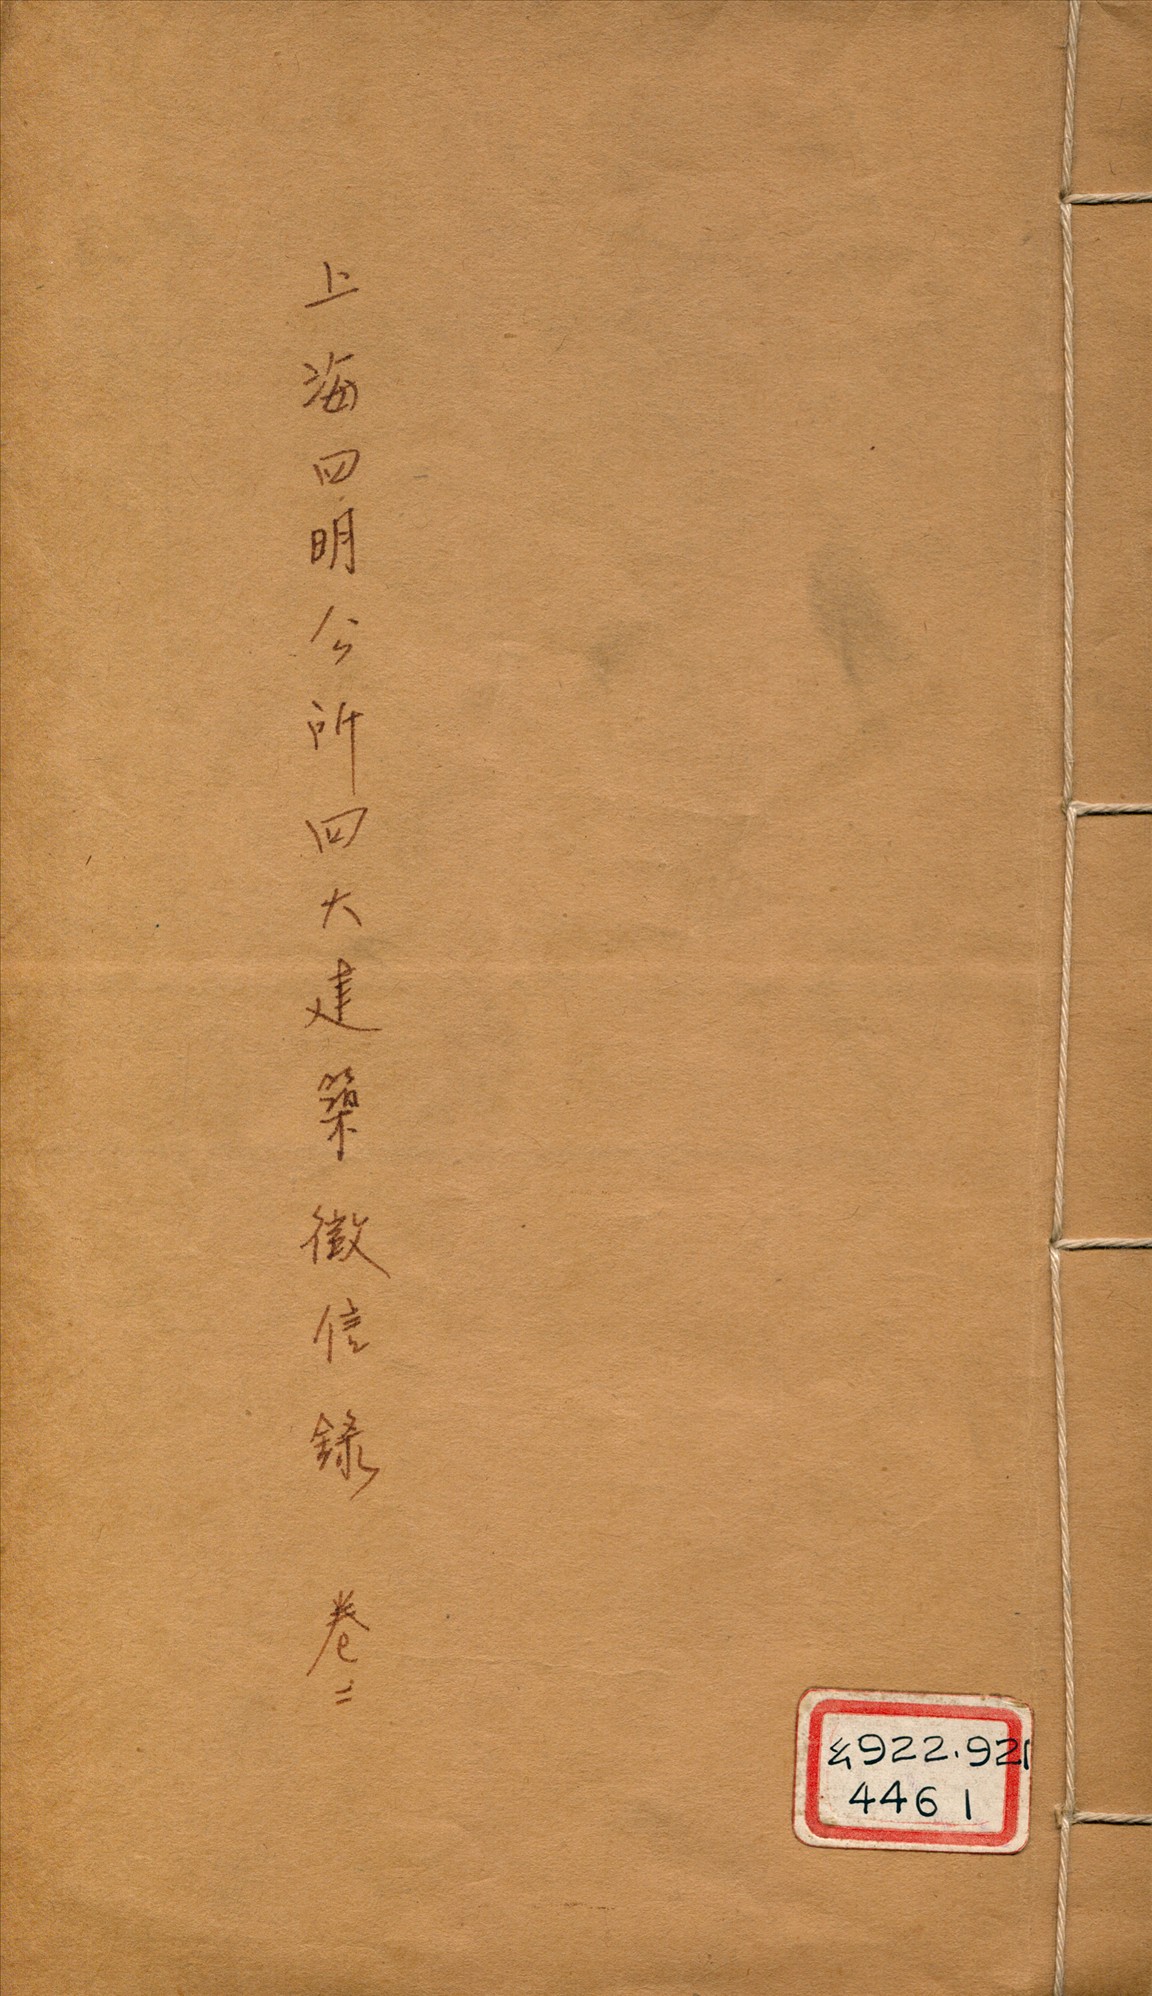 上海四明公所四大建築徵信錄 卷二
幺922.921
4461